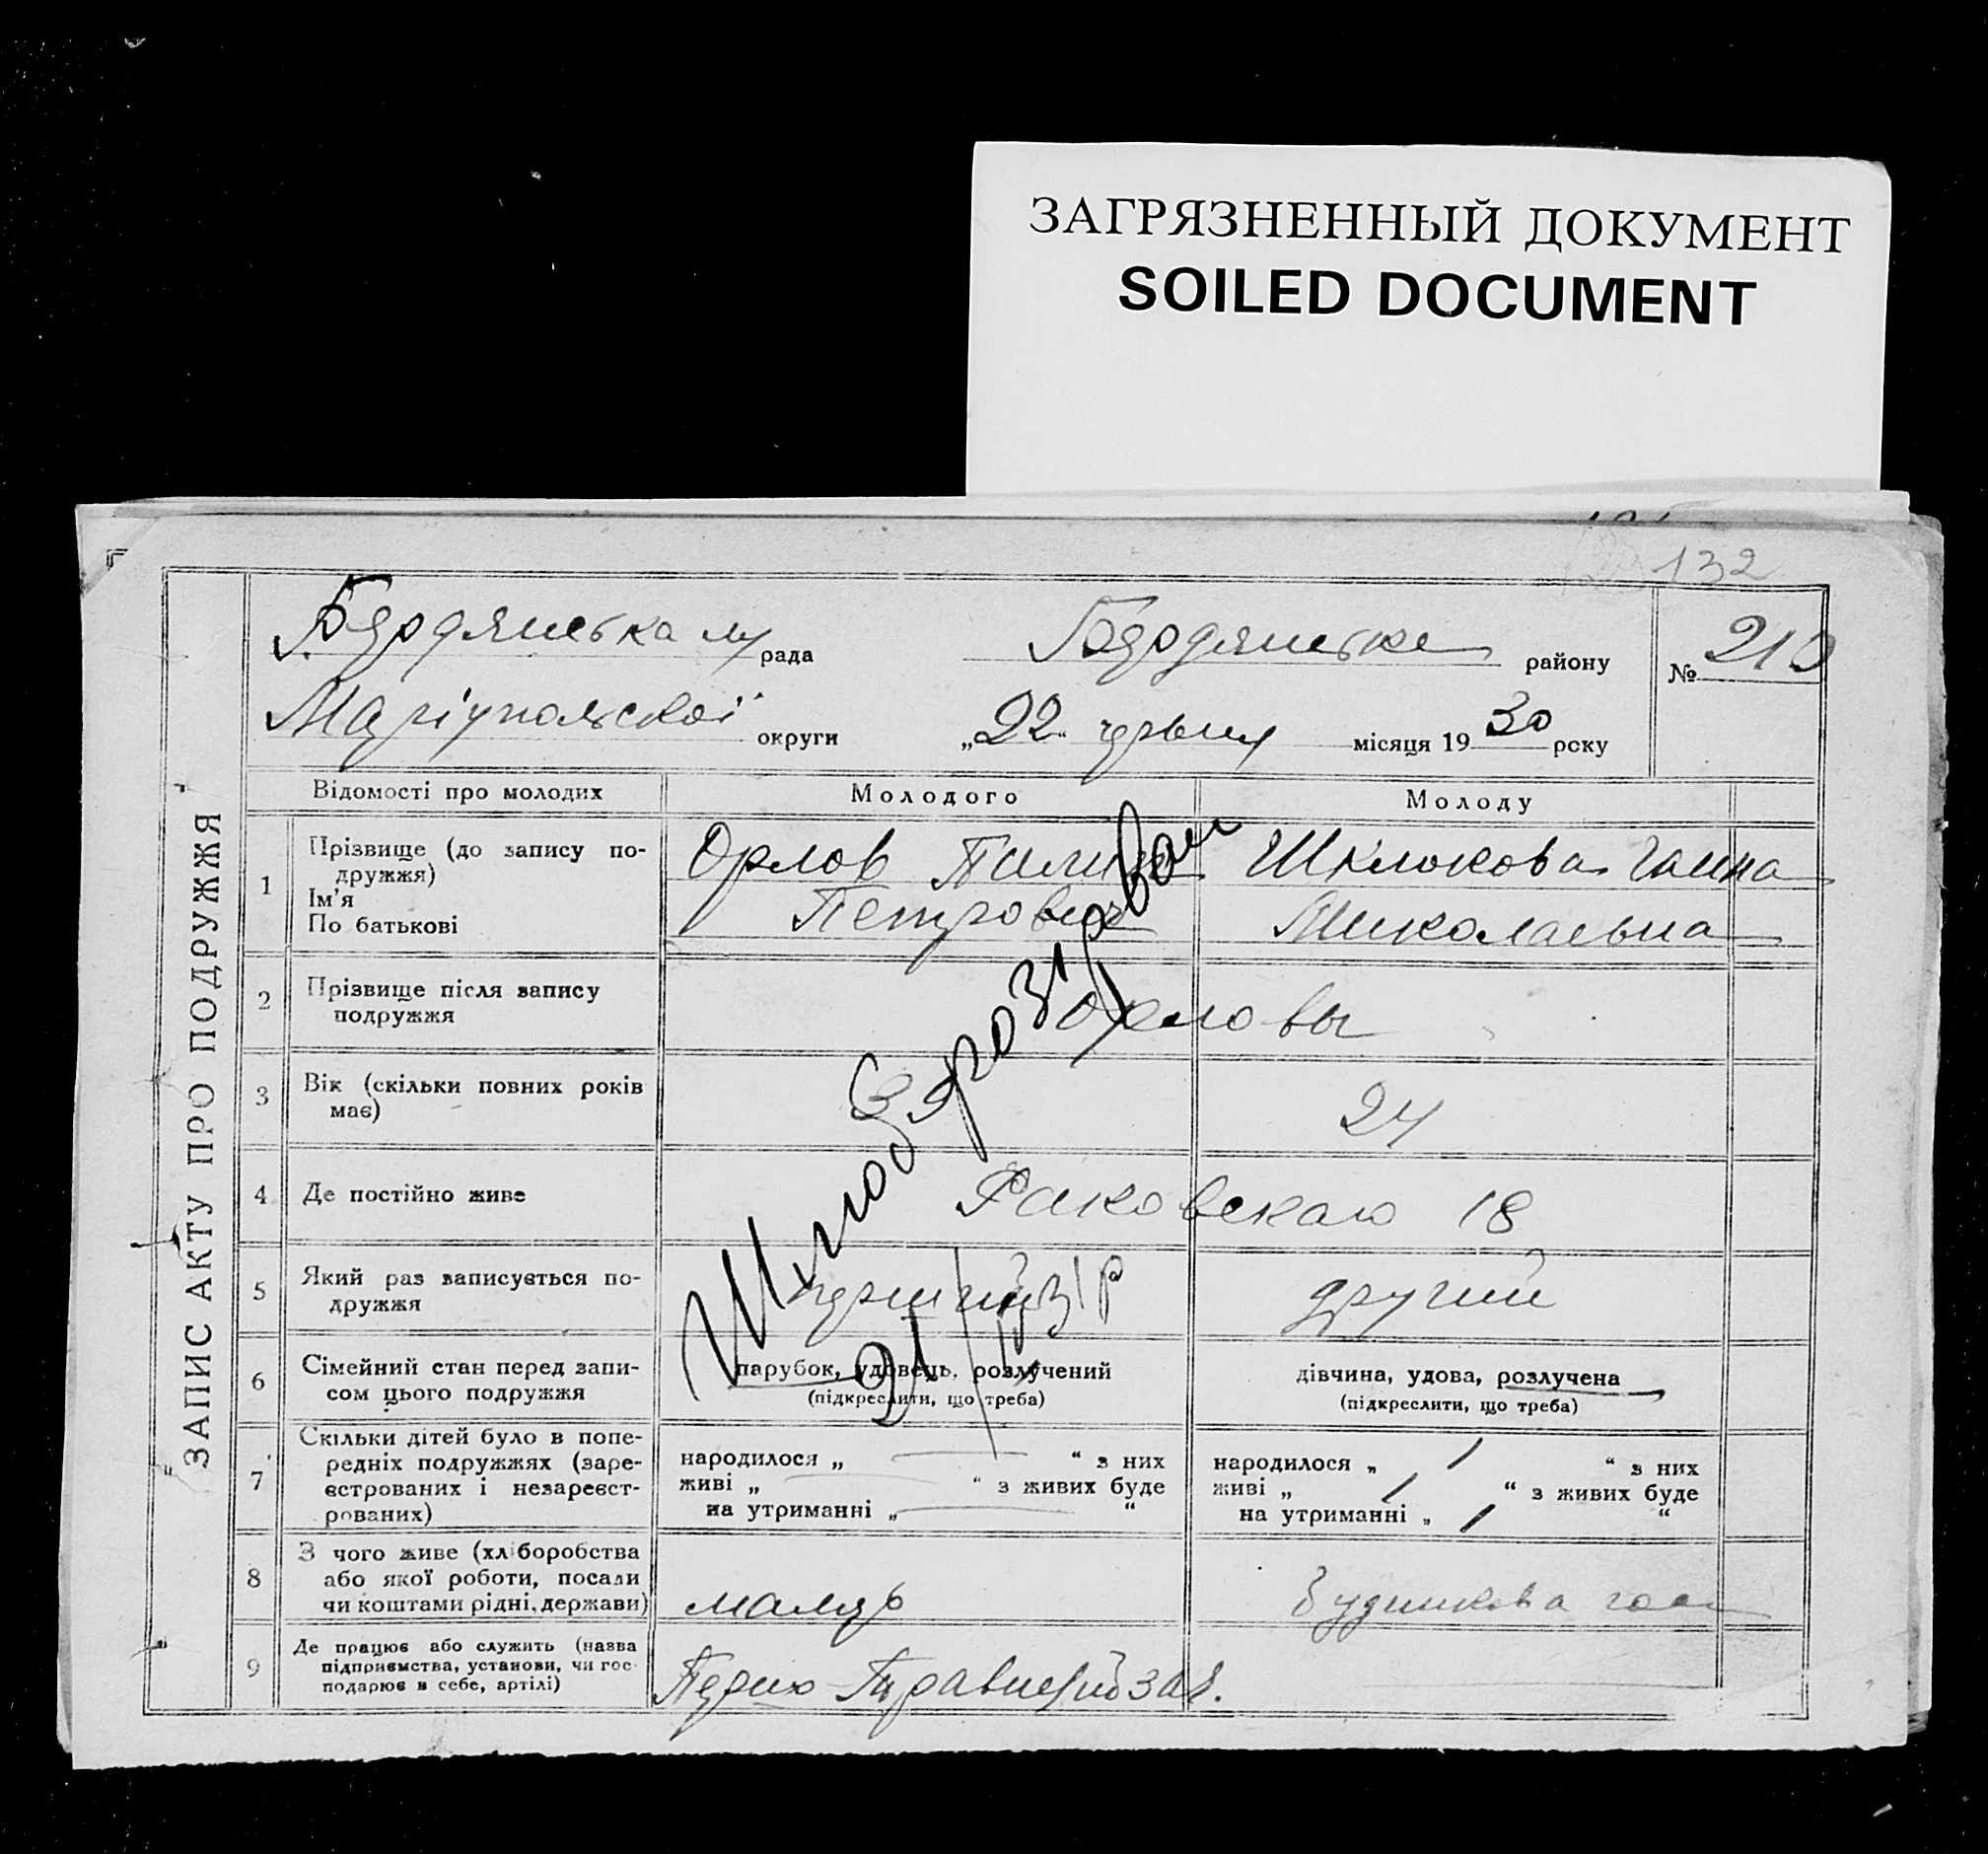 ЗАГРЯЗНЕННЫЙ ДОКУМЕНТ
SOILED DOCUMENT
132
Бердянська рада Бердянське району № 210
Маріупольскоі округи „22“ червня місяця 1930 року
ЗАПИС АКТУ ПРО ПОДРУЖЖЯ
Відомості про молодих Молодого Молоду
1 Прізвище (до запису по-
дружжя)
Ім'я
По батькові
Орлов
Петрович
Шклокова Ганна
Миколаевна
2 Прізвище після запису
подружжя
Орловы
3 Вік (скільки повних років
має)
24
4 Де постійно живе
Раковскаю 18
5 Який раз записується по-
дружжя
перший
другий
6 Сімейний стан перед запи-
сом цього подружжя
парубок, удовець, розлучений
(підкреслити, що треба)
дівчина, удова, розлучена
(підкреслити, що треба)
7 Скільки дітей було в попе-
редніх подружжях (заре-
єстрованих і незареєст-
рованих)
народилося „ “ з них
живі „ “ з живих буде
на утриманні „ “
народилося „ 1 “ з них
живі „ 1 “ з живих буде
на утриманні „ 1 “
8 З чого живе (хліборобства
або якої роботи, посади
чи коштами рідні, держави)
маляр
9 Де працює або служить (назва
підприємства, установи, чи гос-
подарює в себе, артілі)